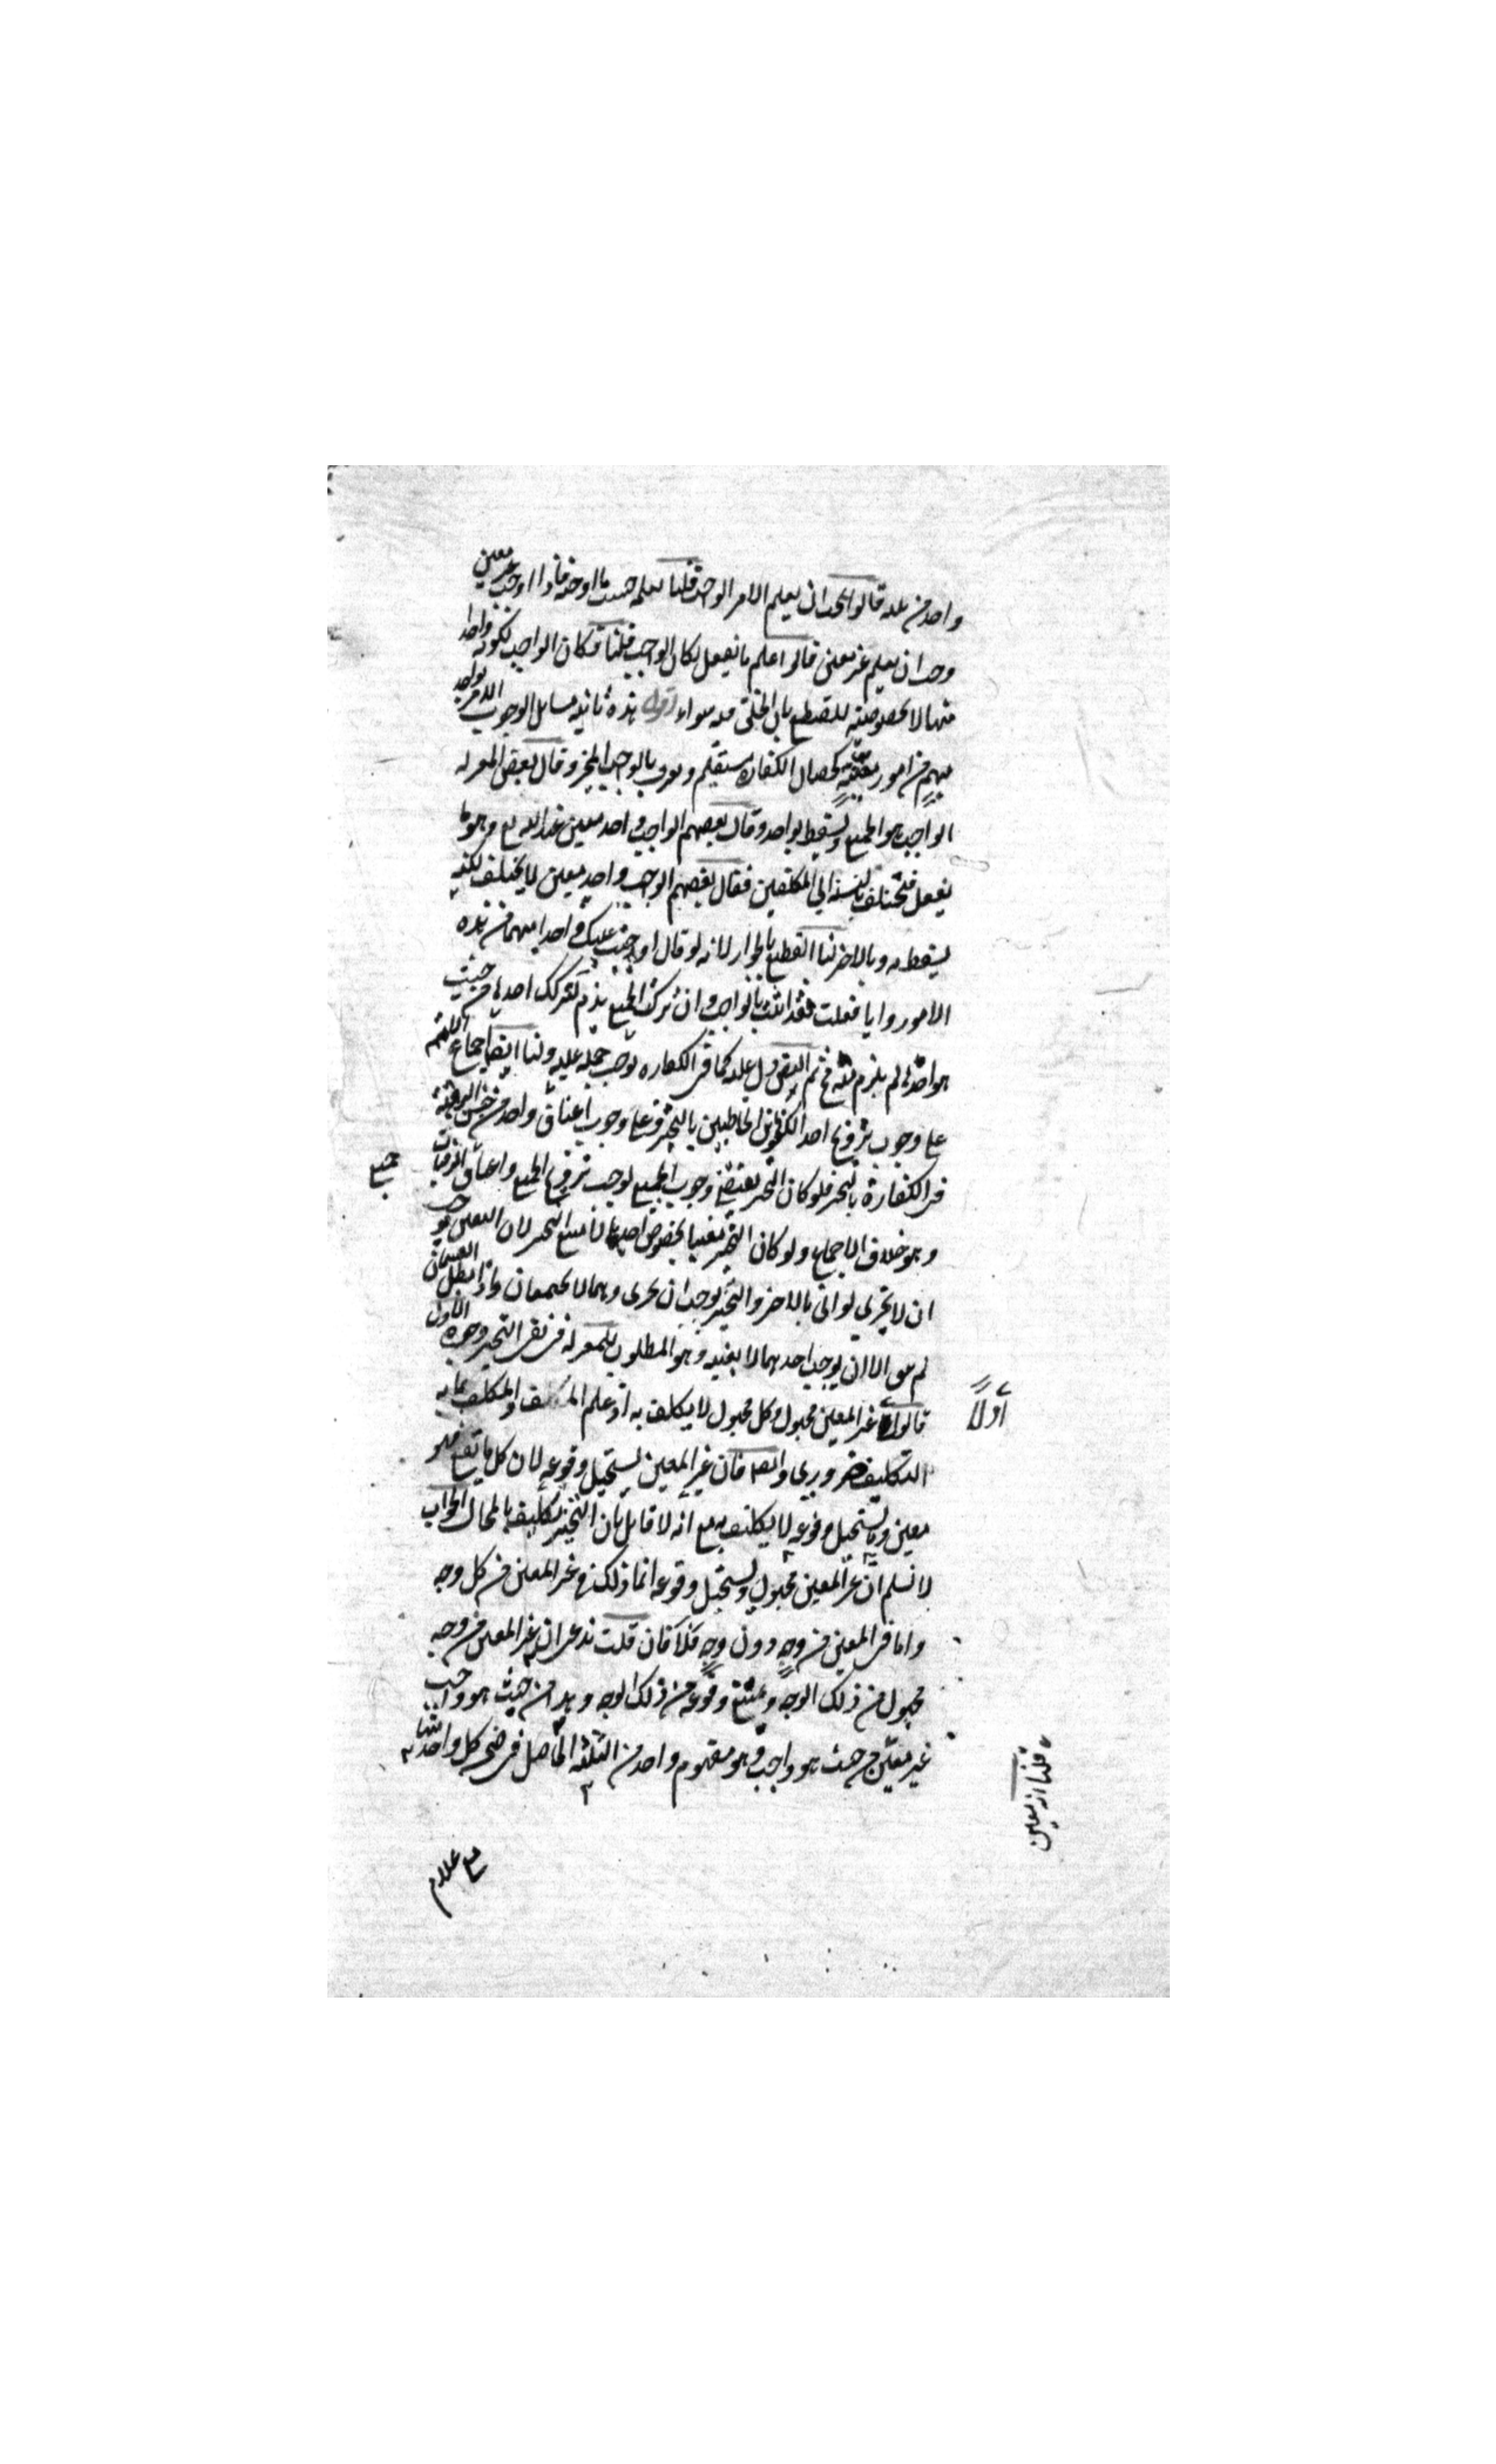 واحد من عله قالوا يجب ان يعلم الامر الواجب قلنا يعلمه حسب ما اوجبه فاذا اوجب غير معين
وجب ان يعلم غير معين قالوا علم ما يفعل فكان الواجب قلنا فكان الواجب لكونه واحدا
منها لا بخصوصيته للقطع بان الخلق فيه سواء اقول هذه ثانية مسايل الوجوب الامر بواحد
مبهم من امور معينه كخصال الكفاره مستقيم ويعرف بالواجب المخير وقال بعض المعتزله
الواجب هو الجميع ويسقط بواحد وقال بعضهم الواجب واحد معين عند الله تع وهو ما
يفعل فيختلف بالنسبة الي المكلفين فقال بعضهم الواجب واحد معين لا يختلف لكنه
يسقط به وبالاخر لنا القطع بالجواز لانه لو قال اوجبت عليك واحدا مبهما من هذه
الامور وايا فعلت فقد اتيت بالواجب وان تركت الجميع يذم لتركك احدها من حيث
هو احدها لم يلزم منه مح ثم النص دل عليه كما في الكفاره فوجب حمله عليه ولنا ايضا اجماع الامة
علي وجوب تزويج احد الكفوين الخاطبين بالتخير وعلي وجوب اعتاق واحد من جنس الرقبة
في الكفارة بالتخير فلو كان التخير يقتضي وجوب الجميع لوجب تزويج الجميع واعتاق الرقبات
جميع
وهو خلاف الاجماع ولو كان التخير مفيدا بخصوص احدهما لامتنع التخير لان التعين يوجب
ان لا يجزي لو اتى بالاخر والتخير يوجب ان يجزى وهما لا يجتمعان واذا بطل القسمان
لم يبق الا ان يوجب احدهما لا بعينه وهو المطلوب للمعتزله في نفي التخير وجوه الاول
قالوا غير المعين مجهول وكل مجهول لا يكلف به اذ علم المكلف والمكلف بما به
أولاً
التكليف ضروري وايضا فان غير المعين يستحيل وقوعه لان كل ما يقع فهو
معين وما يستحيل وقوعه لا يكلف به مع انه لا قايل بان التخير تكليف بالمحال الجواب
لا نسلم ان غير المعين مجهول ويستحيل وقوعه انما ذلك في غير المعين من كل وجه
واما في المعين من وجه دون وجه فلا فان قلت ندعي ان غير المعين من وجه
مجهول من ذلك الوجه ويمتنع وقوعه من ذلك الوجه وهذا من حيث هو واجب
غير معين من حيث هو واجب وهو مفهوم واحد من الثلثه الحاصل في ضمن كل واحد منها
قلنا انه معين